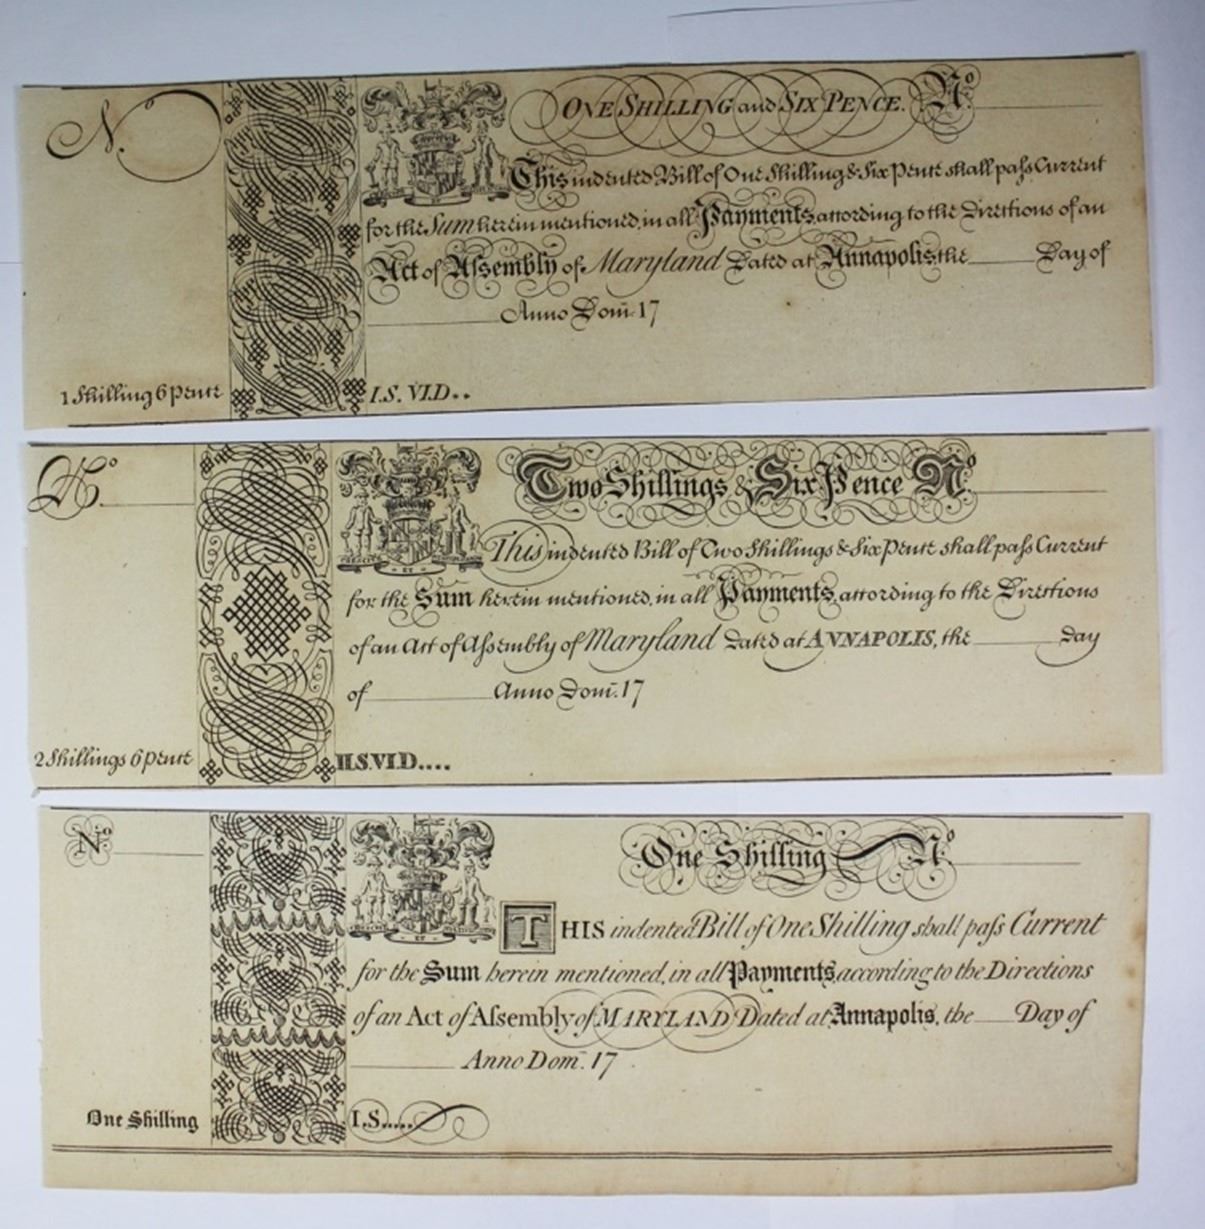 No.
ONE SHILLING and SIX PENCE. No
This indented Bill of One Shilling & Six Pence shall paſs Current
for the Sum herein mentioned, in all Payments, according to the Directions of an
Act of Aſsembly of Maryland Dated at Annapolis, the ______ Day of
______ Anno Dom. 17
1 Shilling 6 Pence
I.S. VI.D..
No.
Two Shillings & Six Pence No
This indented Bill of Two Shillings & Six Pence shall paſs Current
for the Sum herein mentioned, in all Payments, according to the Directions
of an Act of Aſsembly of Maryland Dated at ANNAPOLIS, the ______ Day
of ______ Anno Dom. 17
2 Shillings 6 Pence
II.S.VI.D....
No
One Shilling No
THIS indented Bill of One Shilling shall paſs Current
for the Sum herein mentioned, in all Payments, according to the Directions
of an Act of Aſsembly of MARYLAND Dated at Annapolis, the ______ Day of
______ Anno Dom. 17
One Shilling
I.S.....